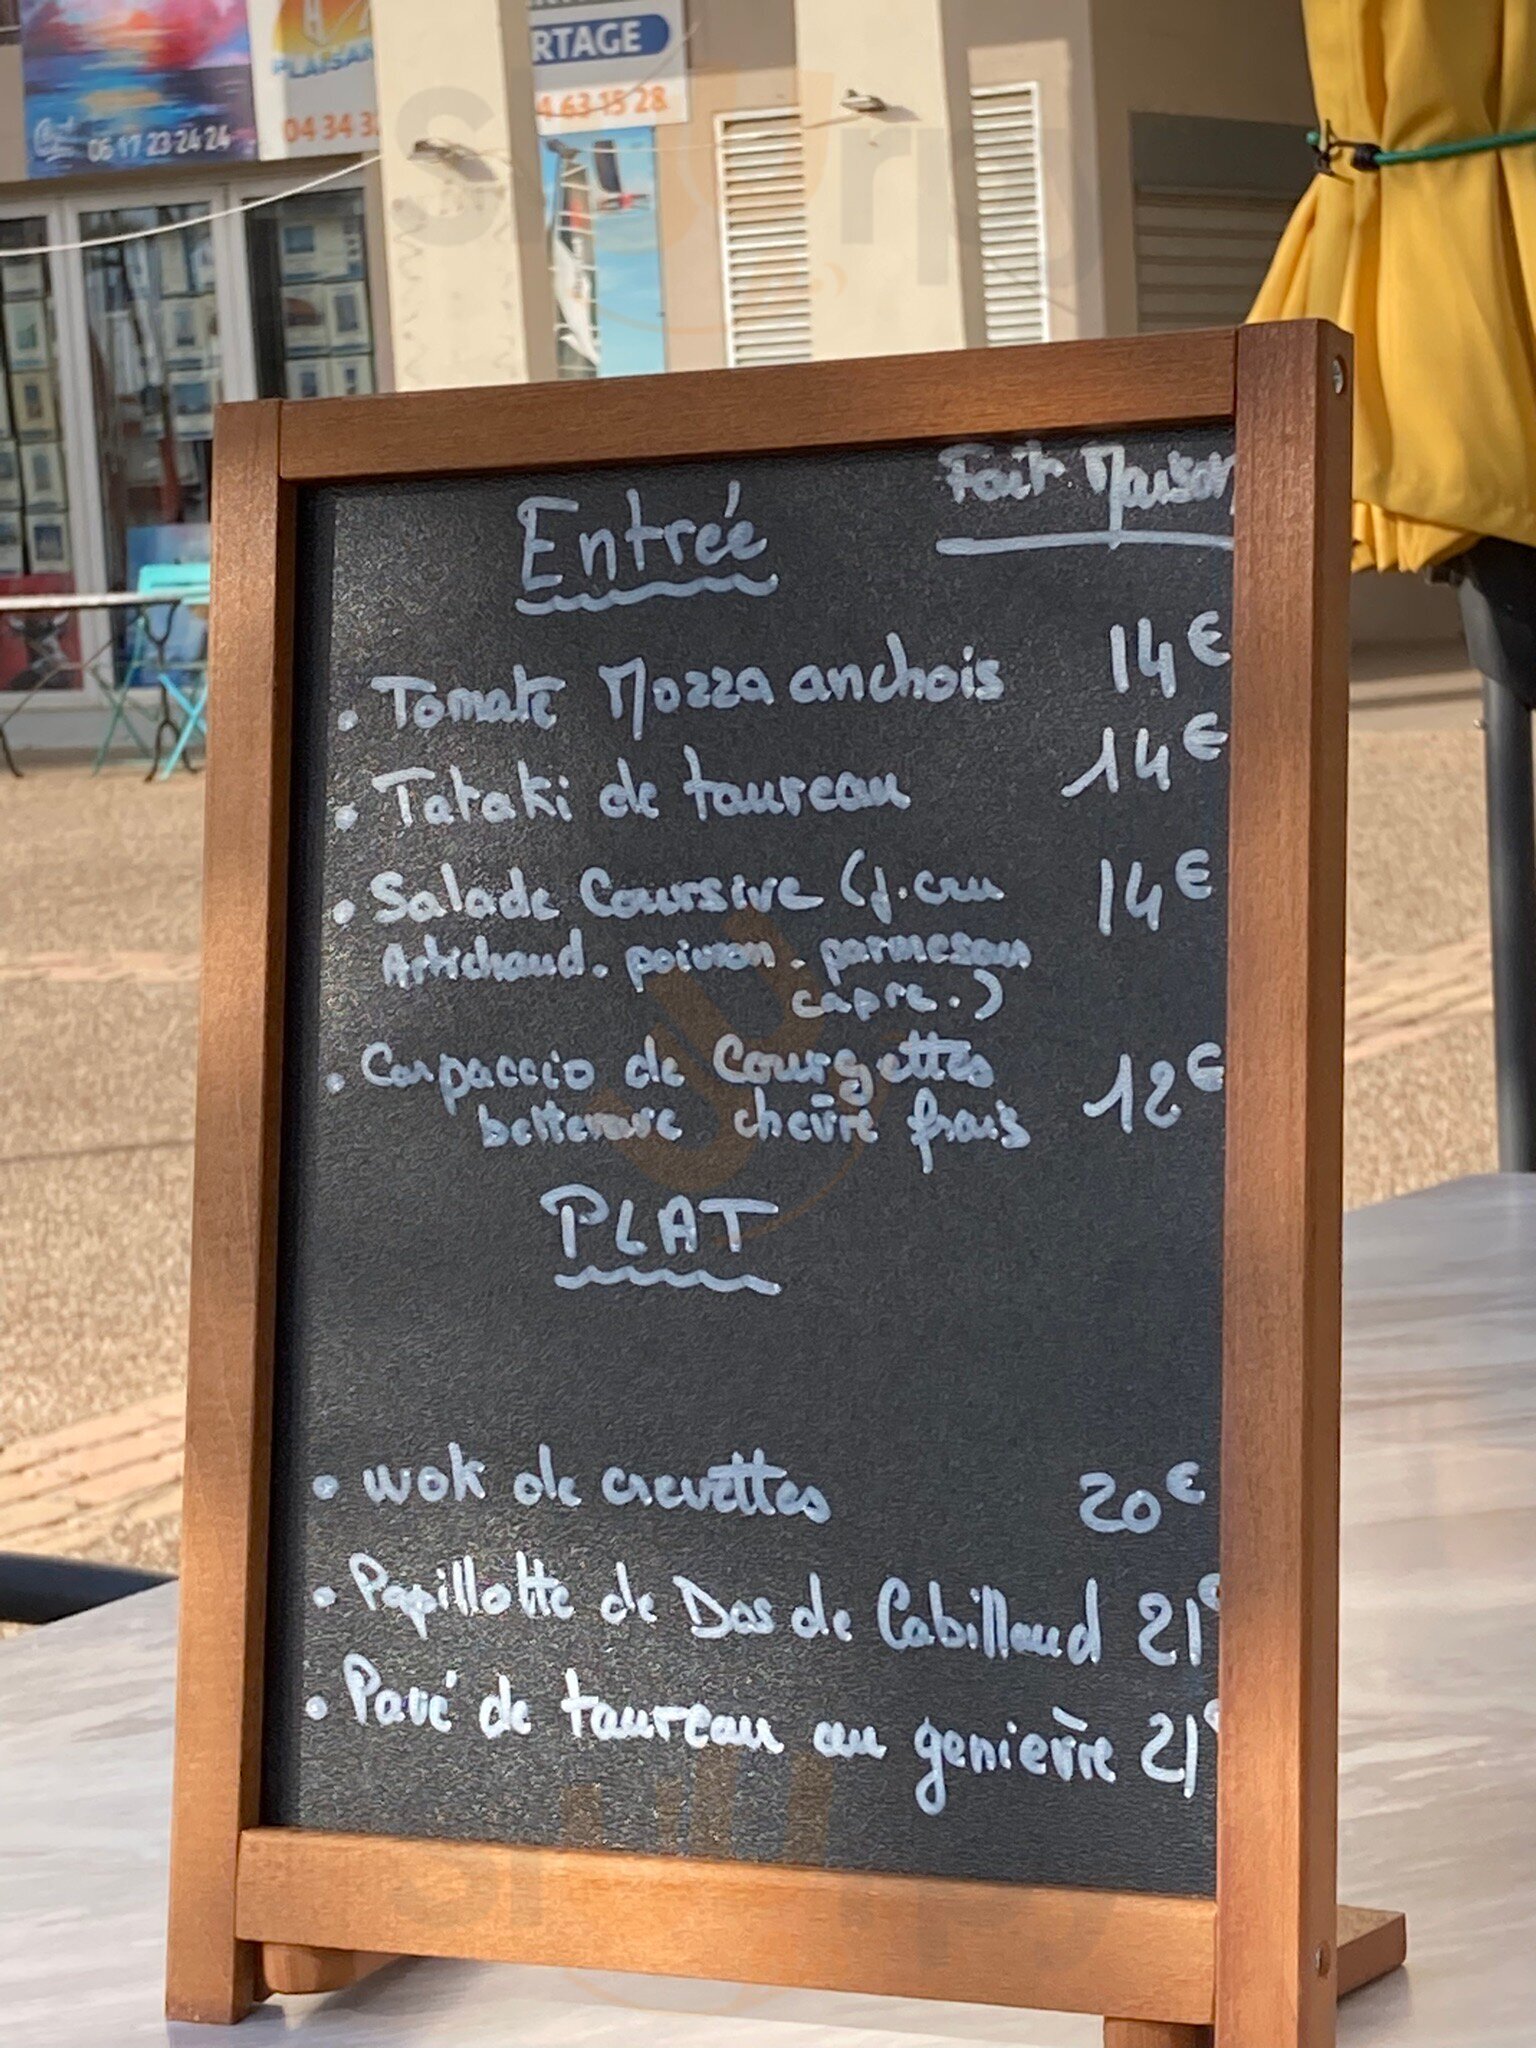 RTAGE
PLAISAN
06 17 23 24 24
04 34 3
4 63 15 28
Fait Maison
Entrée
• Tomate Mozza anchois 14€
• Tataki de taureau 14€
• Salade Coursive (j.cru 14€
Artichaud. poivron. parmesan
capre.)
• Carpaccio de Courgettes 12€
betterave chèvre frais
PLAT
• wok de crevettes 20€
• Papillotte de Dos de Cabillaud 21€
• Pavé de taureau au genièvre 21€